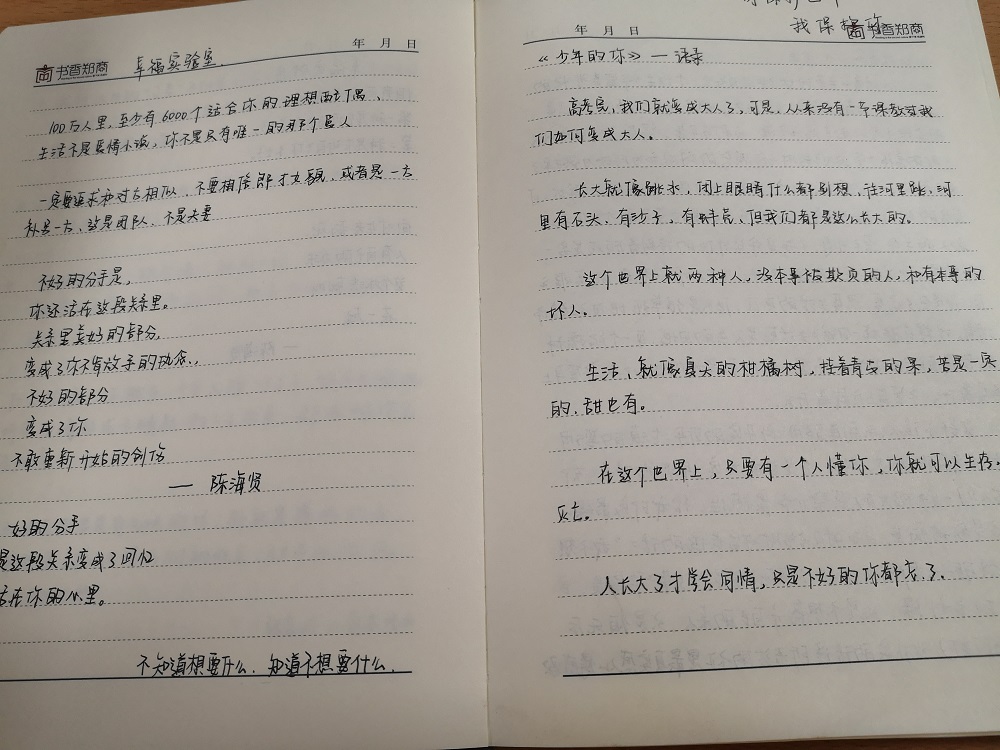 年 月 日
书香知商 幸福实验室.
100万人里,至少有6000个适合你的理想配偶、
生活不是爱情小说,你不是只有唯一的那个爱人
一定要追求和对方相似,不要相信郎才女貌,或者是一方
补另一方,这是团队,不是夫妻
不好的分手是,
你还活在这段关系里。
关系里美好的部分,
变成了你不肯放手的执念.,
不好的部分
变成了你
不敢重新开始的创伤
— 陈海贤
好的分手
是这段关系变成了回忆
活在你的心里。
不知道想要什么.知道不想要什么.
我保护你
年 月 日
书香知商
《少年的你》— 语录
高考完,我们就变成大人了,可是,从来没有一节课教过我
们如何变成大人。
长大就像跳水,闭上眼睛什么都别想,往河里跳,河
里有石头、有沙子、有蚌壳、但我们都是这么长大的。
这个世界上就两种人,没本事被欺负的人,和有本事的
坏人。
生活、就像夏天的柑橘树,挂着青色的果,苦是一定
的.甜也有。
在这个世界上,只要有一个人懂你,你就可以生存.
人长大了才学会同情,只是不好的你都忘了.